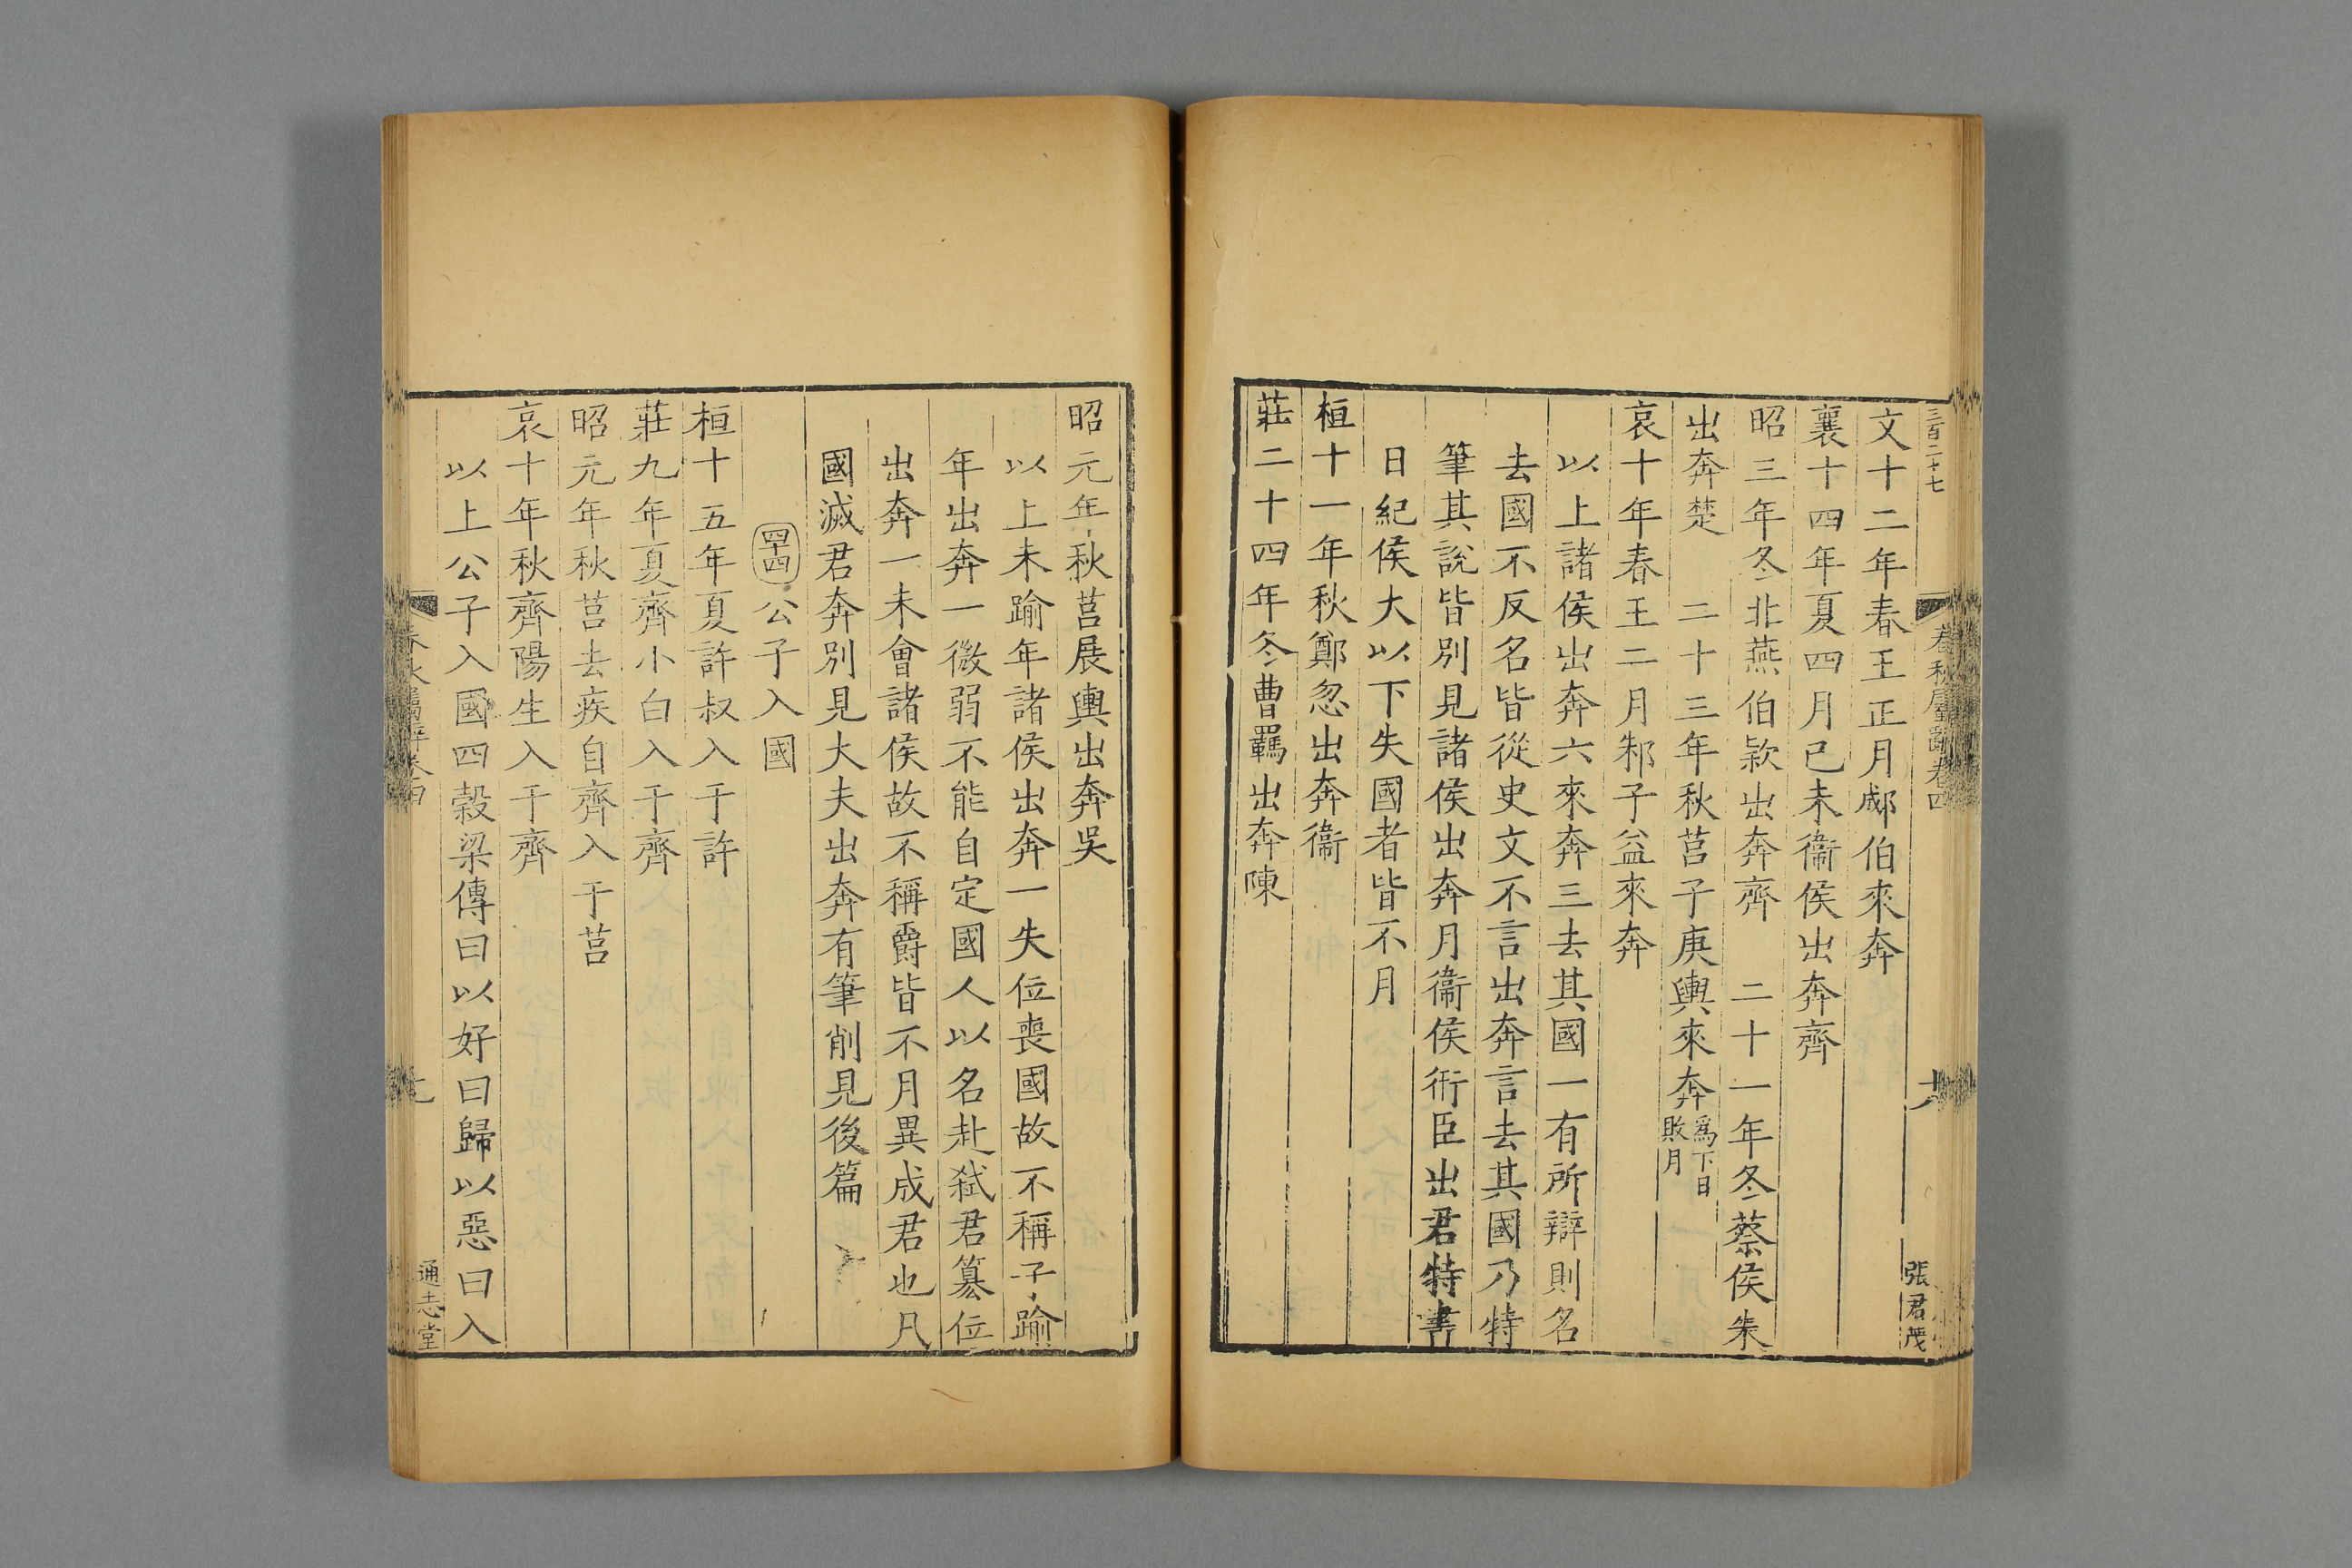 三百二十七
春秋屬辭卷四
十八
張君茂
文十二年春王正月郕伯來奔
襄十四年夏四月己未衞侯出奔齊
昭三年冬北燕伯款出奔齊　二十一年冬蔡侯朱
出奔楚　二十三年秋莒子庚輿來奔爲下日敗月
哀十年春王二月邾子益來奔
以上諸侯出奔六來奔三去其國一有所辯則名
去國不反名皆從史文不言出奔言去其國乃特
筆其說皆別見諸侯出奔月衞侯衎臣出君特書
日紀侯大以下失國者皆不月
桓十一年秋鄭忽出奔衞
莊二十四年冬曹羈出奔陳
昭元年秋莒展輿出奔吳
以上未踰年諸侯出奔一失位喪國故不稱子踰
年出奔一微弱不能自定國人以名赴弑君篡位
出奔一未會諸侯故不稱爵皆不月異成君也凡
國滅君奔別見大夫出奔有筆削見後篇
四十四 公子入國
桓十五年夏許叔入于許
莊九年夏齊小白入于齊
昭元年秋莒去疾自齊入于莒
哀十年秋齊陽生入于齊
以上公子入國四穀梁傳曰以好曰歸以惡曰入
春秋屬辭卷四
通志堂